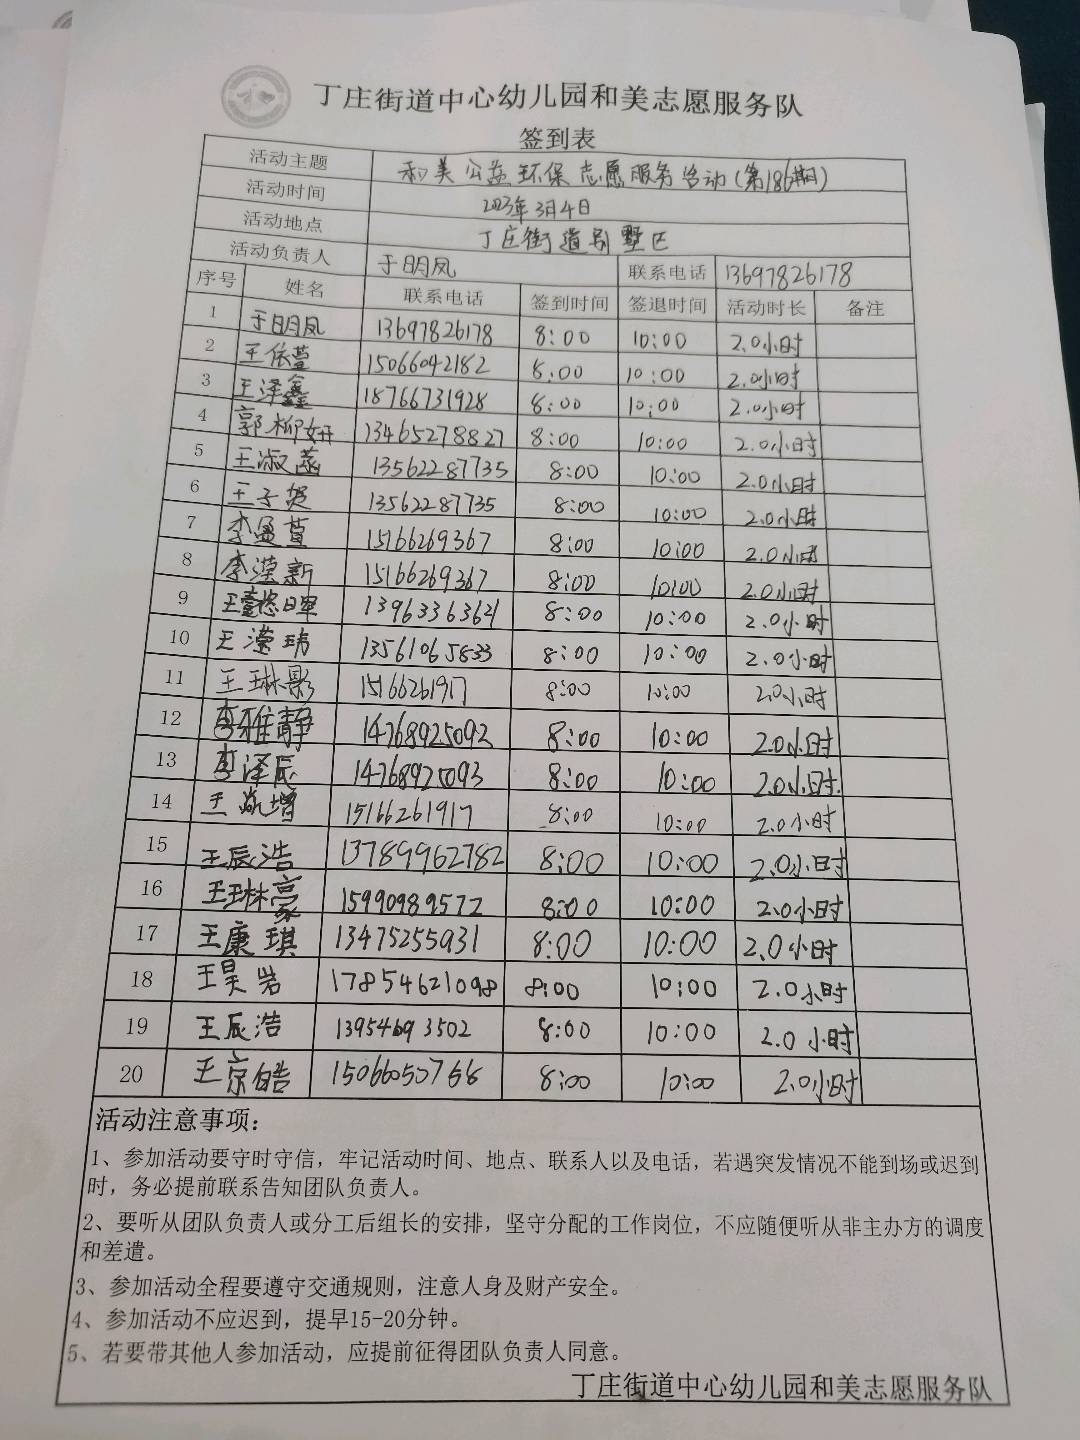 丁庄街道中心幼儿园和美志愿服务队
签到表
活动主题 和美公益环保志愿服务活动(第186期)
活动时间 2023年3月4日
活动地点 丁庄街道别墅区
活动负责人 于明凤 联系电话 13697826178
序号 姓名 联系电话 签到时间 签退时间 活动时长 备注
1 于明凤 13697826178 8:00 10:00 2.0小时
2 王依萱 15066042182 8:00 10:00 2.0小时
3 王泽鑫 18766731928 8:00 10:00 2.0小时
4 郭柳妍 13465278827 8:00 10:00 2.0小时
5 王淑菡 13562287735 8:00 10:00 2.0小时
6 王子贺 13562287735 8:00 10:00 2.0小时
7 李曼萱 15166269367 8:00 10:00 2.0小时
8 李滢新 15166269367 8:00 10:00 2.0小时
9 王懿晖 13963363621 8:00 10:00 2.0小时
10 王滢玮 13561065833 8:00 10:00 2.0小时
11 王琳影 15166261917 8:00 10:00 2.0小时
12 李雅静 14768925092 8:00 10:00 2.0小时
13 李泽辰 14768925093 8:00 10:00 2.0小时
14 王焱增 15166261917 8:00 10:00 2.0小时
15 王辰浩 13789962782 8:00 10:00 2.0小时
16 王琳豪 15990989572 8:00 10:00 2.0小时
17 王康琪 13475255931 8:00 10:00 2.0小时
18 王昊岩 17854621098 8:00 10:00 2.0小时
19 王辰浩 13954693502 8:00 10:00 2.0小时
20 王京皓 15066050766 8:00 10:00 2.0小时
活动注意事项：
1、参加活动要守时守信，牢记活动时间、地点、联系人以及电话，若遇突发情况不能到场或迟到
时，务必提前联系告知团队负责人。
2、要听从团队负责人或分工后组长的安排，坚守分配的工作岗位，不应随便听从非主办方的调度
和差遣。
3、参加活动全程要遵守交通规则，注意人身及财产安全。
4、参加活动不应迟到，提早15-20分钟。
5、若要带其他人参加活动，应提前征得团队负责人同意。
丁庄街道中心幼儿园和美志愿服务队